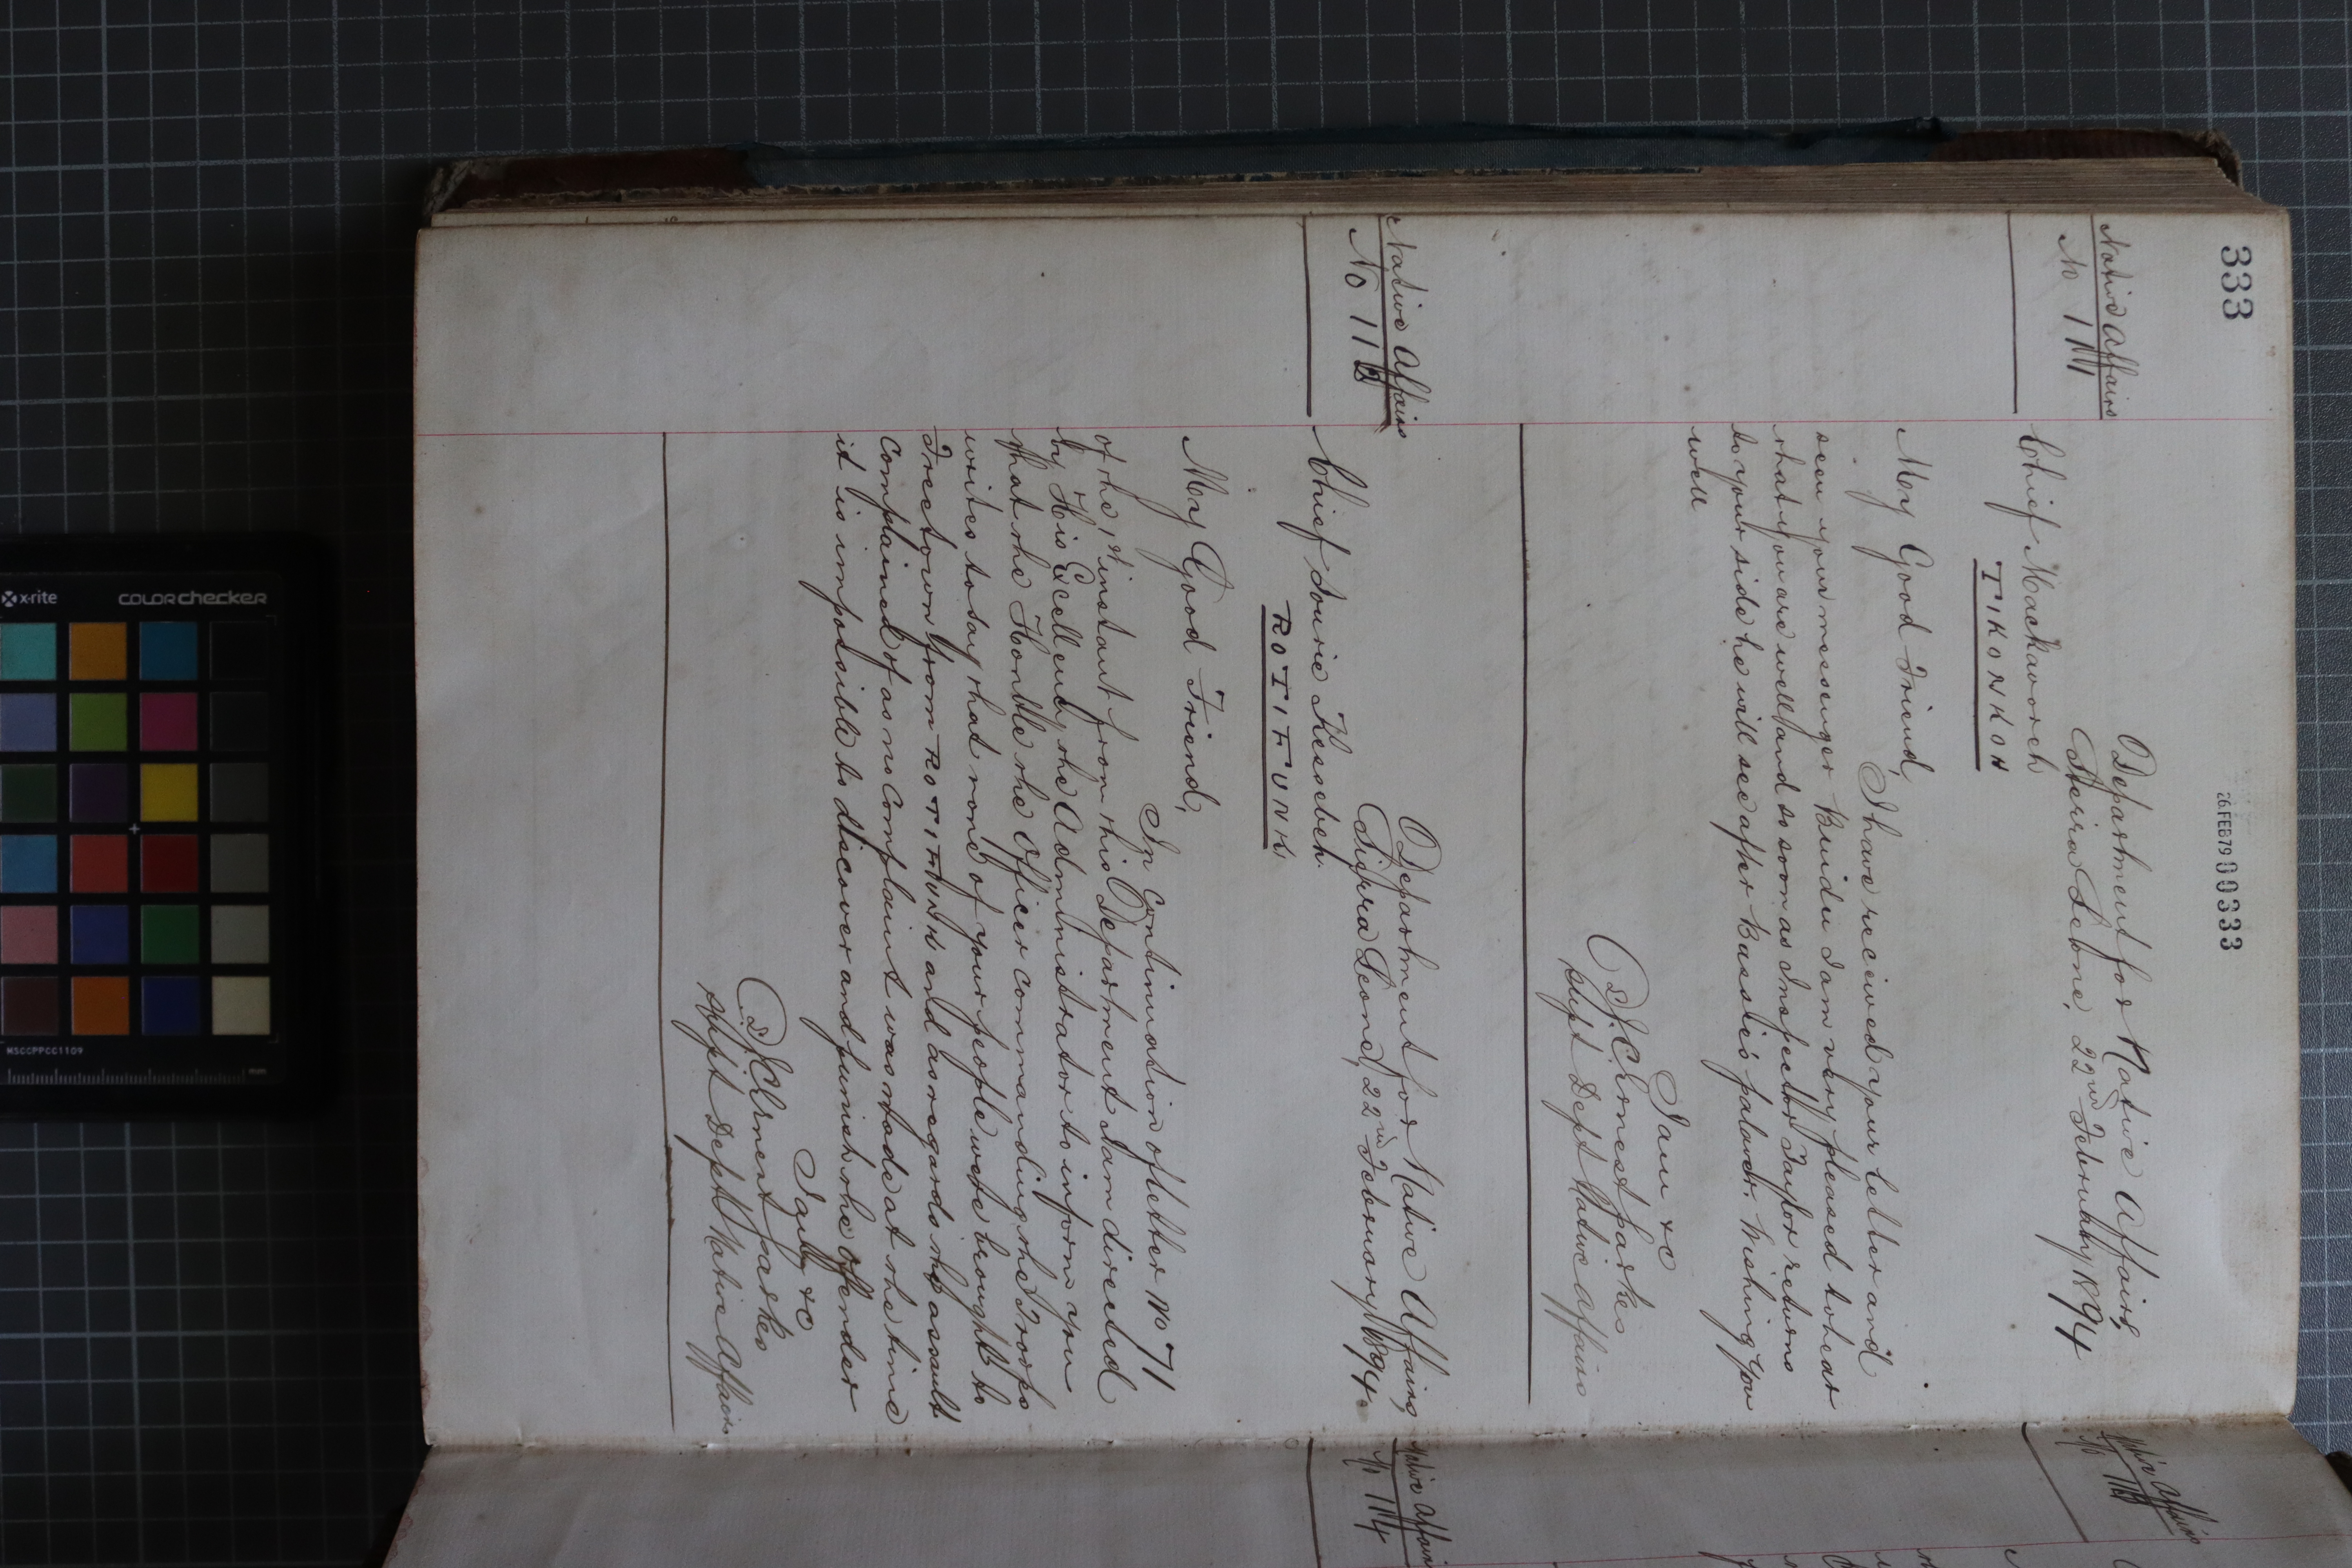 333
26.FEB79 00333
Native Affairs
No 111
Department for Native Affairs,
Sierra Leone, 22nd February 1894
Chief Mackavoreh
TIKONKOH
My Good Friend,
I have received your letter and
seen your messenger Buidu I am very pleased to hear
that you are well and so soon as Inspector Taylor returns
to your side he will see after Bassie's palaver. Wishing you
well
I am &c
J. C. Ernest Parkes
Supt Dept Native Affairs
Native Affairs
No 112
Department for Native Affairs,
Sierra Leone, 22nd February 1894.
Chief Sourie Kessebeh.
ROTIFUNK,
My Good Friend,
In Continuation of letter No 71
of the 1st instant from this Department I am directed
by His Excellency the Administrator to inform you
that the Honble the Officer commanding the Troops
writes to say that none of your people were brought to
Freetown from ROTIFUNK and as regards the assault
complained of as no complaint was made at the time
it is impossible to discover and punish the offender
I am &c
J. C. Ernest Parkes
Supt Dept Native Affairs
Native Affairs
Native Affairs
No 114